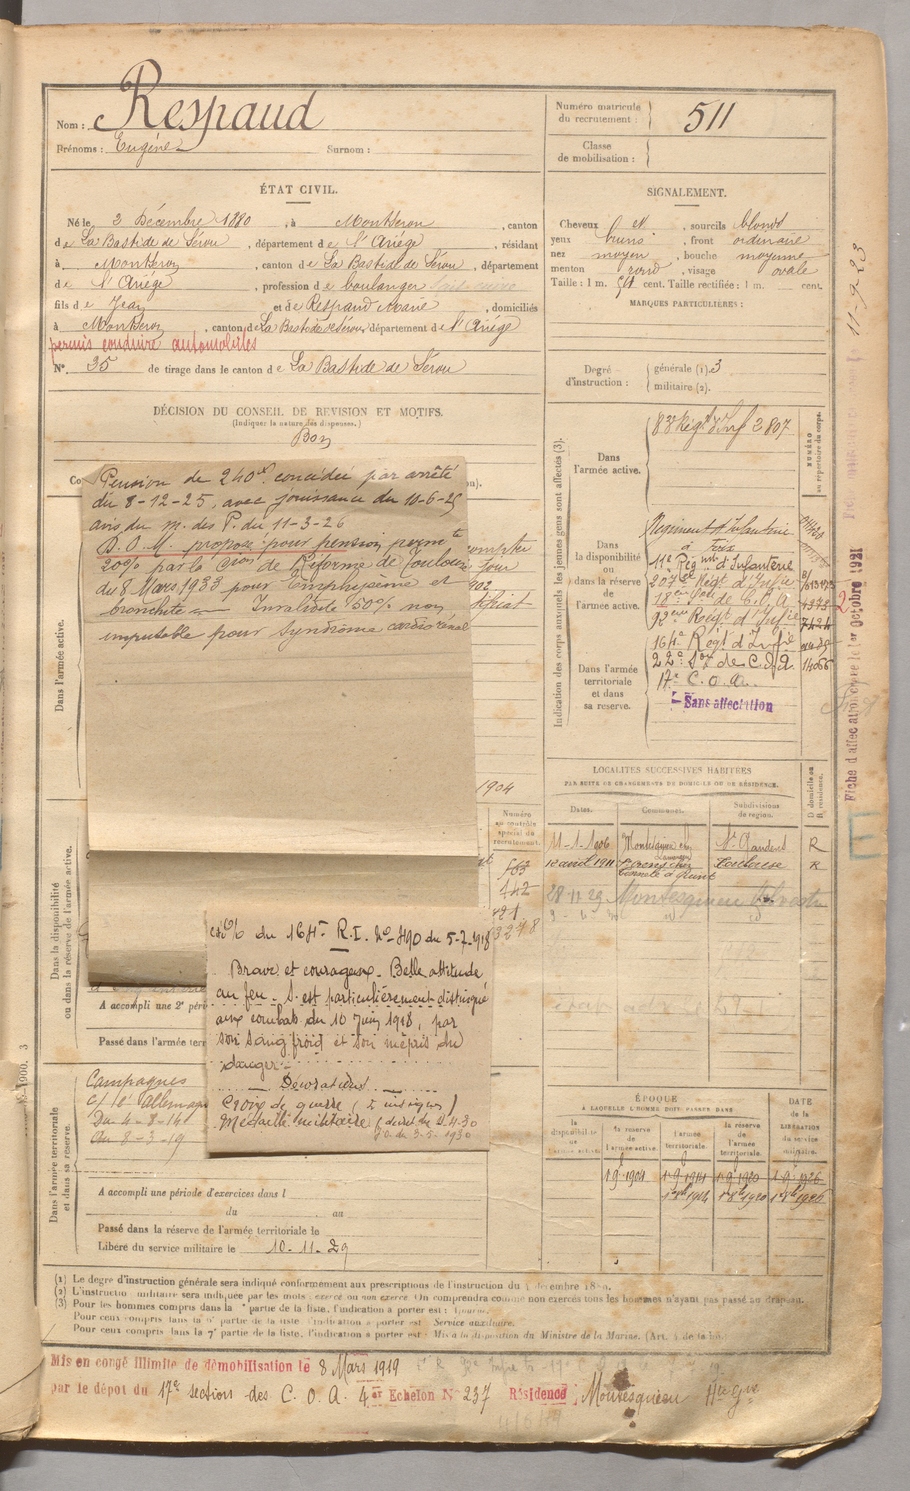 Nom : Respaud
Prénoms : Eugène Surnom :
Numéro matricule du recrutement : 511
Classe de mobilisation :
ÉTAT CIVIL.
Né le 2 Décembre 1880, à Montseron, canton
de La Bastide de Sérou, département de l'Ariège, résidant
à Montseron, canton de La Bastide de Sérou, département
de l'Ariège, profession de boulanger
fils de Jean et de Respaud Marie, domiciliés
à Montseron, canton de La Bastide de Sérou département de l'Ariège
permis conduire automobiles
N° 35 de tirage dans le canton de La Bastide de Sérou
SIGNALEMENT.
Cheveux et, sourcils blonds
yeux bruns, front ordinaire
nez moyen, bouche moyenne
menton rond, visage ovale
Taille : 1 m. cent. Taille rectifiée : 1 m. cent.
MARQUES PARTICULIÈRES :
Degré d'instruction : générale (1). 3
militaire (2).
DÉCISION DU CONSEIL DE REVISION ET MOTIFS.
(Indiquer la nature des dispenses.)
Bon
Pension de 240 concédée par arrêté
du 8-12-25, avec jouissance du 10-6-25
avis du m. des P. du 11-3-26
propose pour pension permte
20% par la Cion de Réforme de Toulouse
du 8 Mars 1933 pour Emphysème et
bronchite — Invalidité 50% non
imputable pour syndrome cardio rénal
1904
du 164e R.I. No 490 du 5-7-918
Brave et courageux - Belle attitude
au feu - S'est particulièrement distingué
aux combats du 10 Juin 1918, par
son sang froid et son mépris du
danger
Décorations
Croix de guerre
Médaille militaire
J.O. du 3-5-1930
Dans l'armée active.
Dans la disponibilité ou dans la réserve de l'armée active.
A accompli une 2e péri
Passé dans l'armée ter
Dans l'armée territoriale et dans sa réserve.
Campagnes
c/ l'Allemagne
Du 4-8-14
Au 8-3-19
A accompli une période d'exercices dans l
du au
Passé dans la réserve de l'armée territoriale le
Libéré du service militaire le 10-11-29
Numéro au contrôle spécial du recrutement.
Indication des corps auxquels les jeunes gens sont affectés (3).
NUMÉRO au répertoire du corps.
Dans l'armée active.
83e Régt d'Inf 2807
Dans la disponibilité ou dans la réserve de l'armée active.
Régiment d'Infanterie
à Foix
Régiment d'Infanterie
207e Régt d'Infie
18eme Son de C.O.A.
92eme Régt d'Infie
164e Régt d'Infie
Dans l'armée territoriale et dans sa réserve.
22e Son de C.O.A. 14066
17e C.O.A.
Sans affectation
LOCALITÉS SUCCESSIVES HABITÉES
PAR SUITE DE CHANGEMENTS DE DOMICILE OU DE RÉSIDENCE.
D domicile ou R résidence.
Dates. Communes. Subdivisions de région.
11-1-1906 St Gaudens R
avril 1911 Toulouse R
28-11-29 Montesquieu Volvestre
ÉPOQUE
À LAQUELLE L'HOMME DOIT PASSER DANS
DATE de la LIBÉRATION du service militaire.
la disponibilité de l'armée active. la réserve de l'armée active. l'armée territoriale. la réserve de l'armée territoriale.
Fiche d'affectation créée le 1er Octobre 1921
11-9-23
(1) Le degré d'instruction générale sera indiqué conformément aux prescriptions de l'instruction du
(2) L'instruction militaire sera indiquée par les mots : exercé ou non exercé. On comprendra comme non exercés tous les hommes n'ayant pas passé au drapeau.
(3) Pour les hommes compris dans la partie de la liste, l'indication à porter est :
Pour ceux compris dans la partie de la liste l'indication à porter est Service auxiliaire.
Pour ceux compris dans la 7e partie de la liste, l'indication à porter est : Mis à la disposition du Ministre de la Marine.
Mis en congé illimité de démobilisation le 8 Mars 1919
par le dépôt du 17e sections des C.O.A. 4er Échelon N° 237 Résidence : Montesquieu Hte Gne